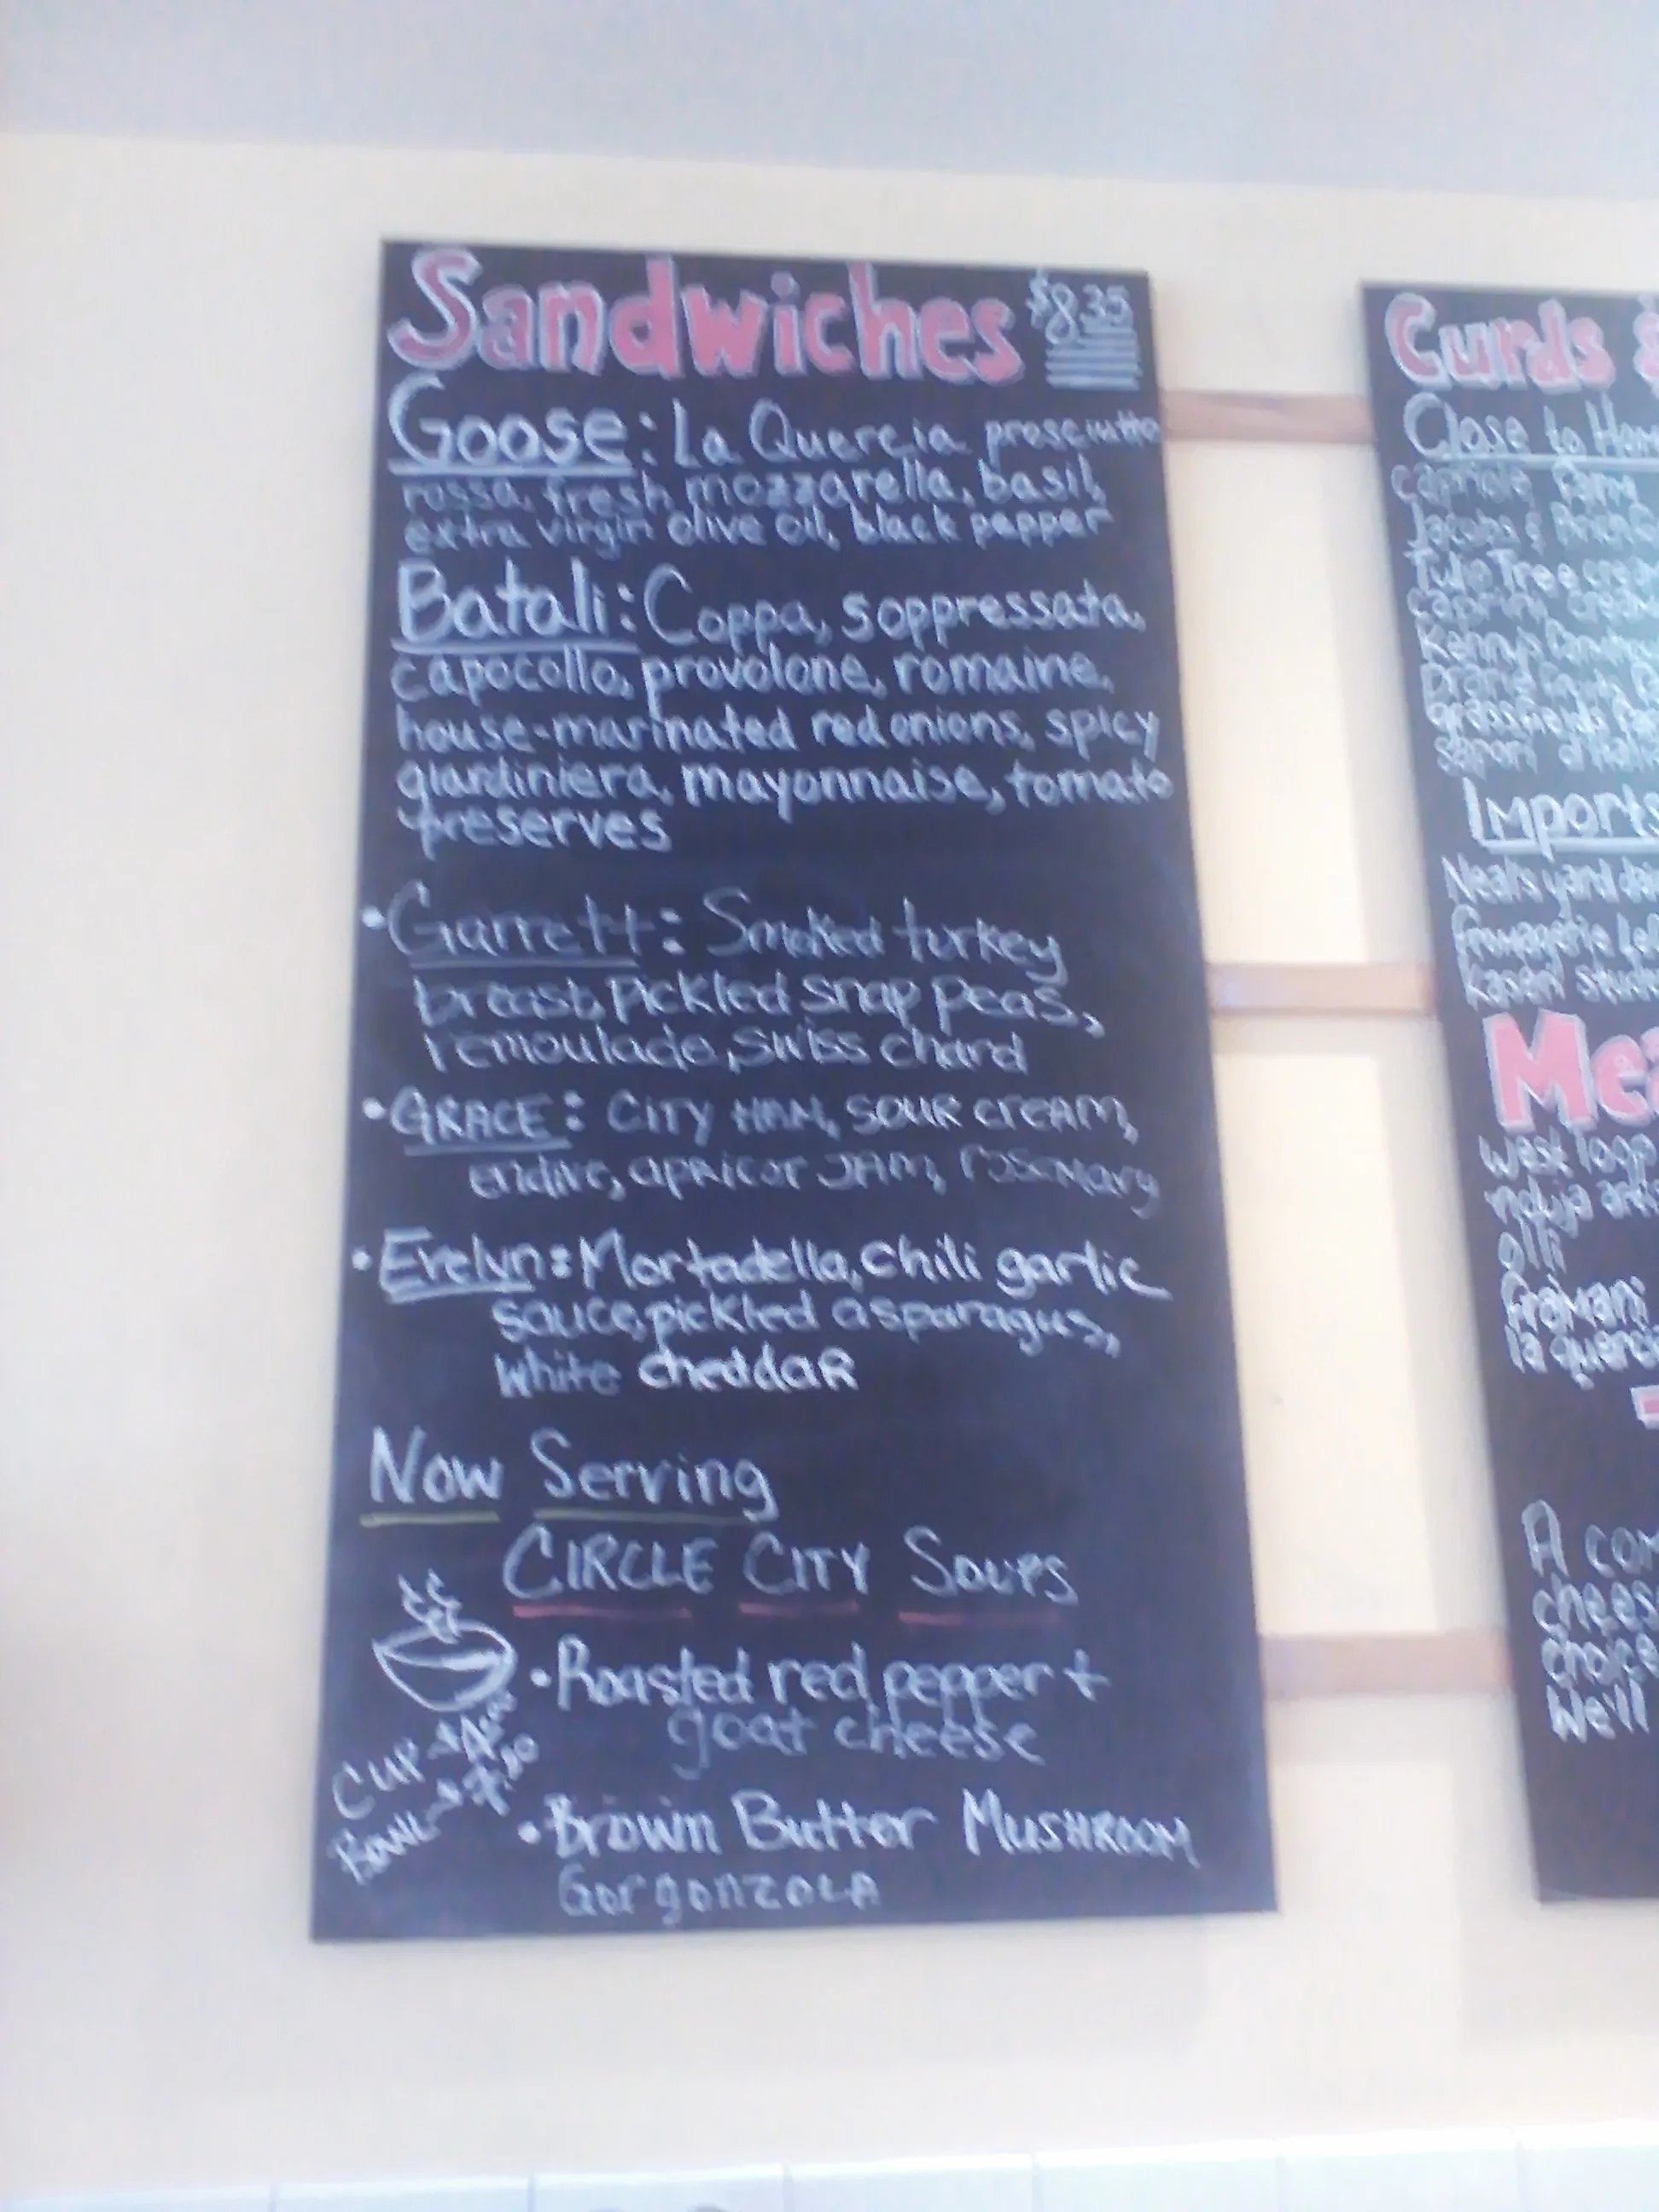 Sandwiches $8.35
Goose: La Quercia prosciutto
rossa, fresh mozzarella, basil,
extra virgin olive oil, black pepper
Batali: Coppa, soppressata,
capocollo, provolone, romaine,
house-marinated red onions, spicy
giardiniera, mayonnaise, tomato
preserves
• Garrett: Smoked turkey
breast, Pickled snap peas,
remoulade, swiss chard
• GRACE: CITY HAM, SOUR CREAM,
endive, apricot JAM, rosemary
• Evelyn: Mortadella, chili garlic
sauce, pickled asparagus,
white cheddaR
Now Serving
CIRCLE CITY Soups
• Roasted red pepper +
goat cheese
CUP
BOWL
• Brown Butter MUSHROOM
GorgonzoLA
Curds &
Close to Hom
Capriole
Jacobs &
Tulip Tree
Kenny's
Imports
Neals yard
Mea
west loop
olli
la querc
A com
chees
choice
We'll